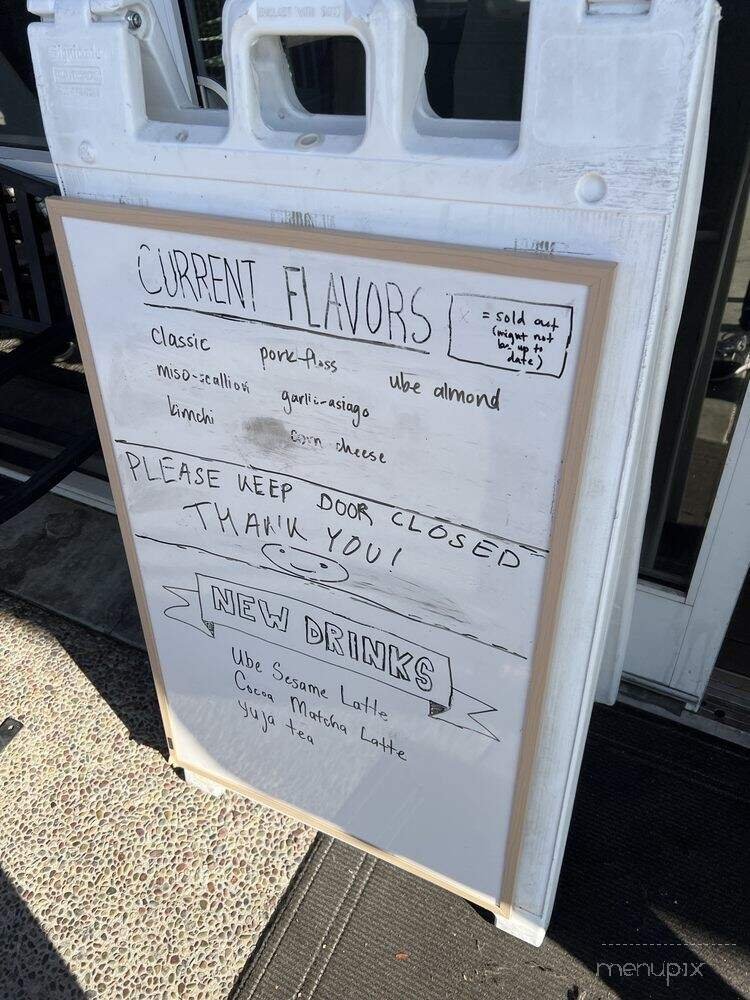 CURRENT FLAVORS
x = sold out
(might not
be up to
date)
classic
pork-floss
ube almond
miso-scallion
garlic-asiago
kimchi
corn cheese
PLEASE KEEP DOOR CLOSED
THANK YOU!
NEW DRINKS
Ube Sesame Latte
Cocoa Matcha Latte
yuja tea
menupix